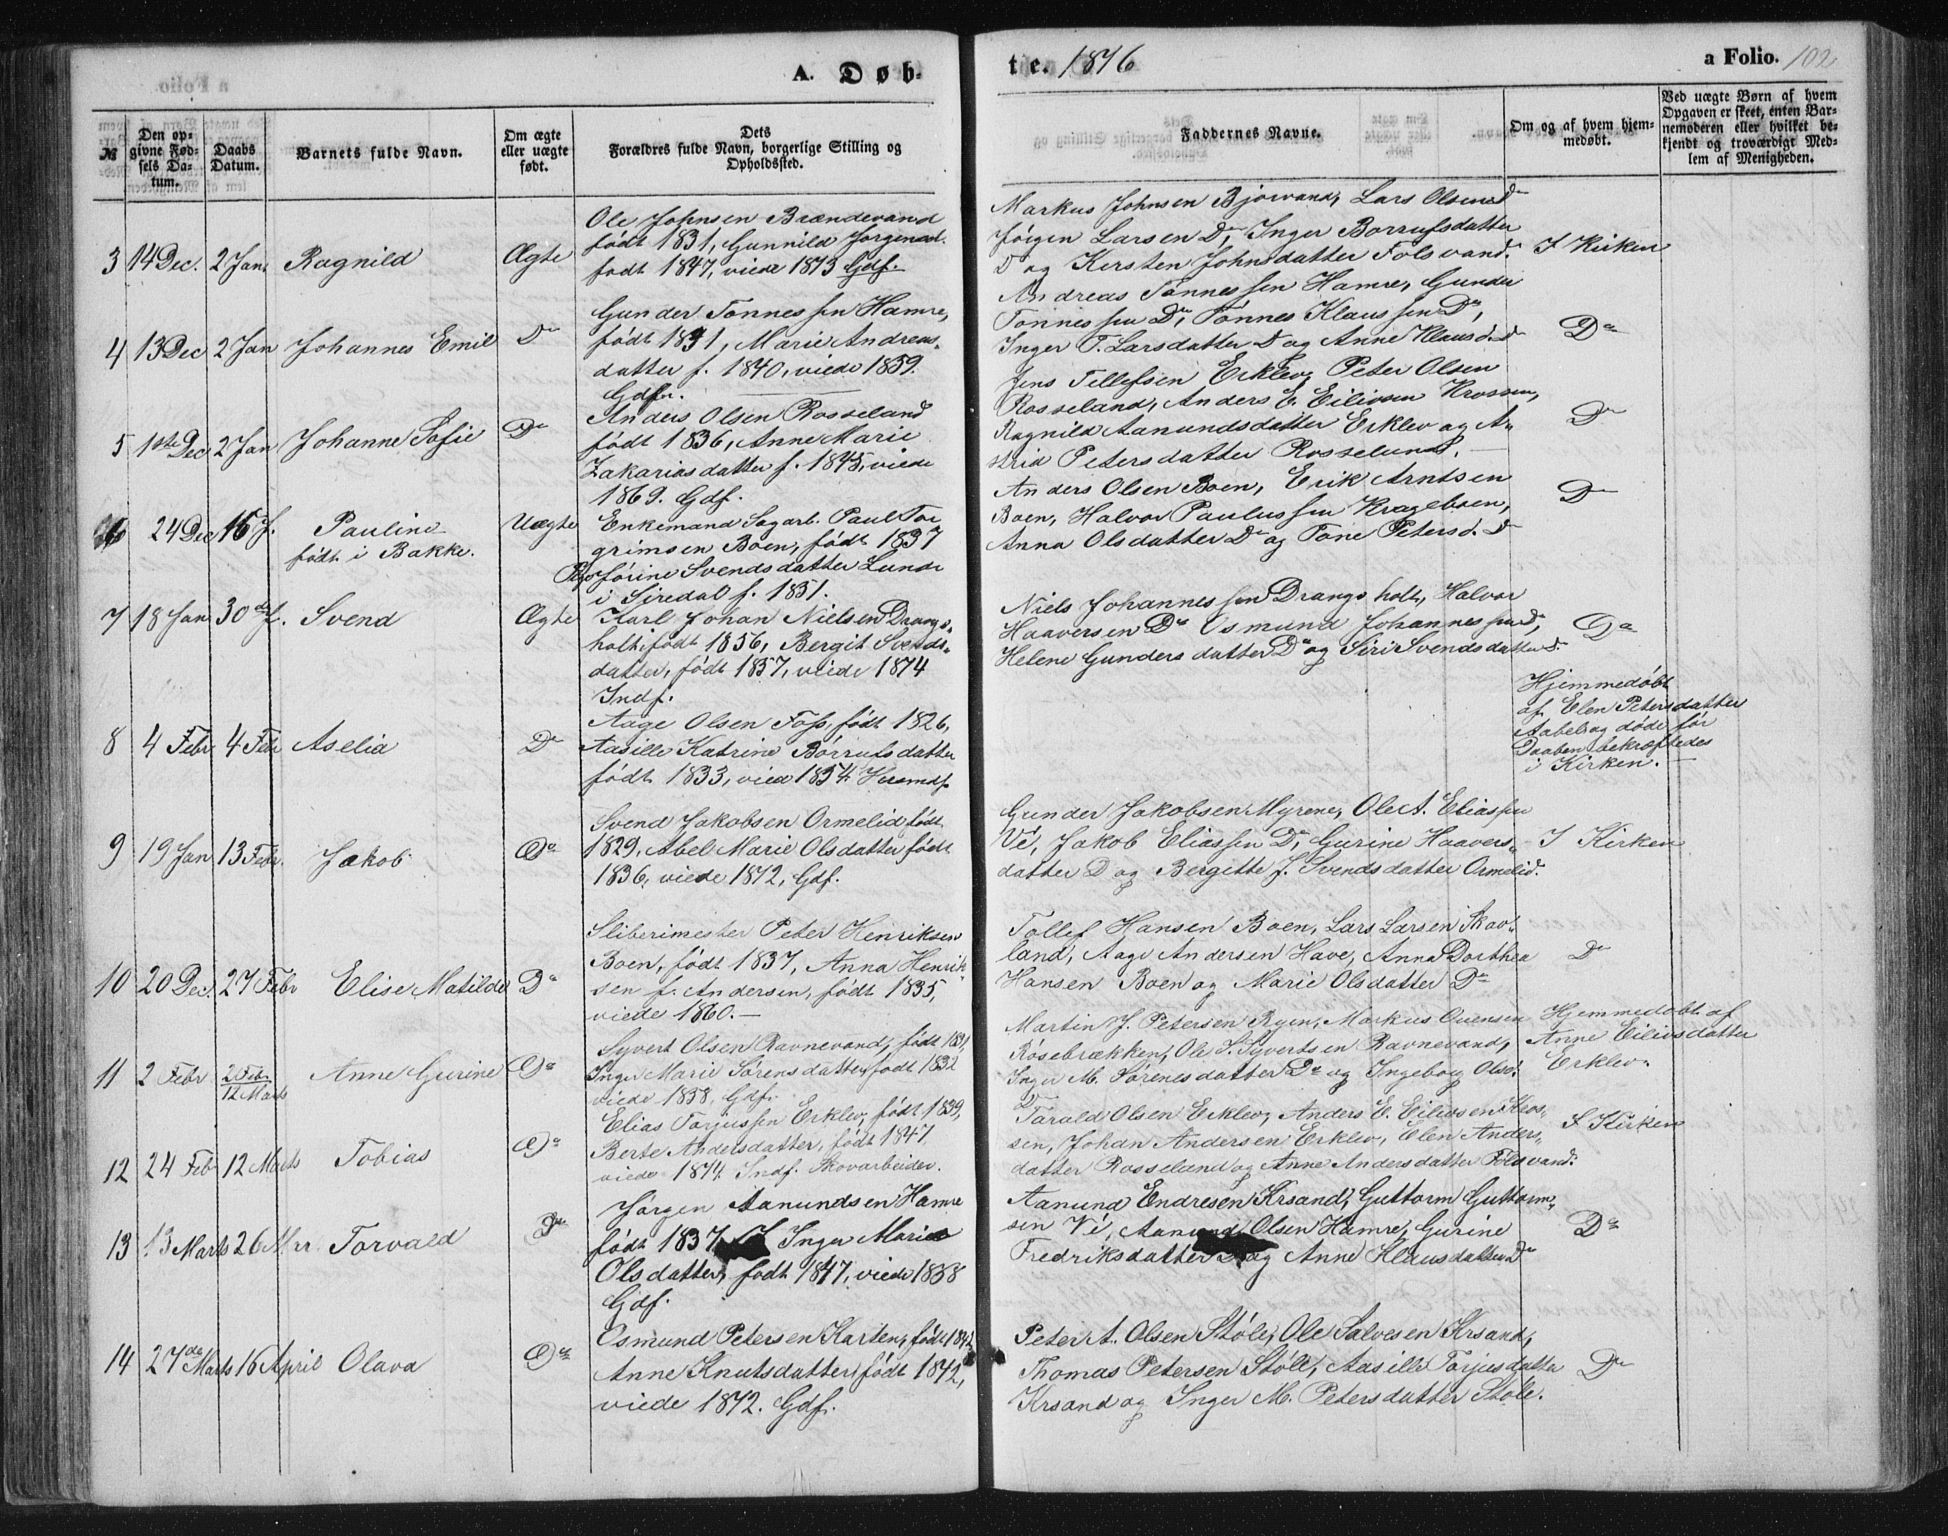 A. Døb-
te. 1876
a Folio. 102
№
Den op-
givne Fød-
sels Da-
tum.
Daabs
Datum.
Barnets fulde Navn.
Om ægte
eller uægte
født.
Dets
Forældres fulde Navn, borgerlige Stilling og
Opholdssted.
Faddernes Navne.
Om og af hvem hjem-
medøbt.
Ved uægte Børn af hvem
Opgaven er skeet, enten Bar-
nemoderen eller hvilket be-
kjendt og troværdigt Med-
lem af Menigheden.
3 14 Dec. 2 Jan. Ragnild Ægte
Ole Johnsen Brændevand
født 1831, Gunnild Jørgensd.
født 1847, viede 1873 Gdf.
Markus Johnsen Bjorvand, Lars Olsen Do
Jørgen Larsen Do, Inger Børrufsdatter
Do og Kirsten Johnsdatter Folsvand.
I Kirken
4 13 Dec 2 Jan Johannes Emil Do
Gunder Tønnessen Hamre,
født 1831, Marie Andreas-
datter f. 1840, viede 1859.
Gdfr.
Andreas Tønnessen Hamre, Gunder
Tønnessen Do, Tønnes Klaussen Do,
Inger T. Larsdatter Do og Anne Klausd. Do
Do
5 1ste Dec 2 Jan Johanne Sofie Do
Anders Olsen Rosseland
født 1836, Anne Marie
Zakariasdatter f. 1845, viede
1869. Gdf.
Jens Tellefsen Erklev, Peter Olsen
Rosseland, Anders E. Eilivsen Krossen,
Ragnild Aanundsdatter Erklev og A-
strid Petersdatter Rosseland.
Do
6 24 Dec 16 J. Pauline
født i Bakke.
Uægte
Enkemand Sagarb. Paul Tor
grimsen Boen, født 1837
Pige Jørine Svendsdatter Lunde
i Siredal f. 1851.
Anders Olsen Boen, Erik Arntsen
Boen, Halvor Paulussen Krageboen,
Anna Olsdatter Do og Tone Petersd. Do
Do
7 18 Jan 30de J. Svend Ægte
Karl Johan Nielsen Drangs-
holt, født 1856, Bergit Svends-
datter, født 1857, viede 1874
Indf.
Niels Johannessen Drangsholt, Halvor
Haaversen Do Osmund Johannessen Do,
Helene Gundersdatter Do og Siri Svendsdatter Do.
Do
8 4 Febr 4 Febr Aselia Do
Aage Olsen Foss, født 1826,
Aasille Katrine Børrufsdatter
født 1833, viede 1854. Husmd.
Hjemmedøbt
af Elen Petersdatter
Aabel og døde før
Daaben bekræftedes
i Kirken.
9 19 Jan 13 Febr. Jakob Do
Svend Jakobsen Ormelid født
1829, Abel Marie Olsdatter født
1836, viede 1872, Gdf.
Gunder Jakobsen Myrene, Ole A. Eliassen
Vé, Jakob Eliassen Do, Gurine Haavers-
datter Do og Bergitte J. Svendsdatter Ormelid.
I Kirken
10 20 Dec. 27 Febr Elise Matilde Do
Sliberimester Peter Henriksen
Boen, født 1837, Anna Henrik-
sen f. Andersen, født 1835,
viede 1860.
Tollef Hansen Boen, Lars Larsen Skav-
land, Aage Andersen Have, Anna Dorthea
Hansen Boen og Marie Olsdatter Do
Do
11 2 Febr 2 Febr
12 Marts
Anne Gurine Do
Syvert Olsen Ravnevand, født 1831,
Inger Marie Sørensdatter, født 1832
viede 1858, Gdf.
Martin J. Petersen Ryen, Markus Ouensen
Røsebrækken, Ole S. Syvertsen Ravnevand,
Inger M. Sørensdatter Do og Ingeborg Olsd.
Do
Hjemmedøbt af
Anne Eilivsdatter
Erklev.
12 24 Feb 12 Marts Tobias Do
Elias Torjussen Erklev, født 1839,
Berte Andersdatter, født 1847,
viede 1874 Indf. Skovarbeider.
Tarald Olsen Erklev, Anders E. Eilivsen Kros-
sen, Johan Andersen Erklev, Elen Anders-
datter Rosseland og Anne Andersdatter Folsvand.
I Kirken
13 13 Marts 26 Mar Torvald Do
Jørgen Aanundsen Hamre
født 1837 Inger Marie
Olsdatter, født 1847, viede 1858
Gdf.
Aanund Endresen Krsand, Guttorm Guttorm-
sen Vé, Aanund Olsen Hamre, Gurine
Fredriksdatter Do og Anne Klausdatter Do
Do
14 27de Marts 16 April Olava Do
Osmund Petersen Karten, født 1842,
Anne Knutsdatter, født 1842,
viede 1872. Gdf.
Peter A. Olsen Støle, Ole Salvesen Krsand,
Thomas Petersen Støle, Aasille Torjusdatter
Krsand og Inger M. Petersdatter Støle.
Do